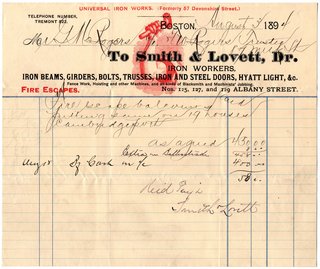 UNIVERSAL IRON WORKS. (Formerly 57 Devonshire Street.)
TELEPHONE NUMBER,
TREMONT 802.
BOSTON, August 3 1894
Rogers
To Smith & Lovett, Dr.
IRON WORKERS,
IRON BEAMS, GIRDERS, BOLTS, TRUSSES, IRON AND STEEL DOORS, HYATT LIGHT, &c.
Fence Work, Hoisting and other Machines, and all kinds of Blacksmith and Machinists' Jobbing.
FIRE ESCAPES.
Nos. 125, 127, and 129 ALBANY STREET.
Fire escape balconies and
putting same on 19 houses
Cambridgeport
as agreed 450.00
Extra on
458.00
By Cash on a/c 400
58
Recd Pay't
Smith & Lovett